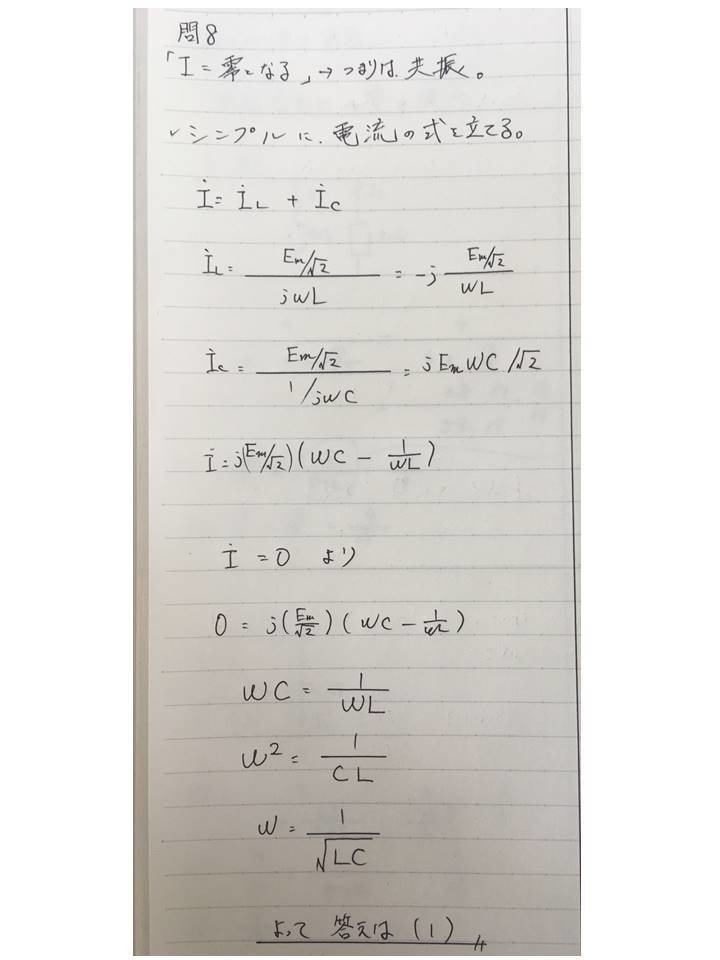 問8
「I=零となる」→つまりは、共振。
✓シンプルに、電流の式を立てる。
İ = İL + İC
İL = (Em/√2)/(jωL) = -j (Em/√2)/(ωL)
İc = (Em/√2)/(1/jωC) = jEmωC/√2
İ = j(Em/√2)(ωC - 1/ωL)
İ = 0 より
0 = j(Em/√2)(ωC - 1/ωL)
ωC = 1/ωL
ω² = 1/CL
ω = 1/√LC
よって 答えは (1)